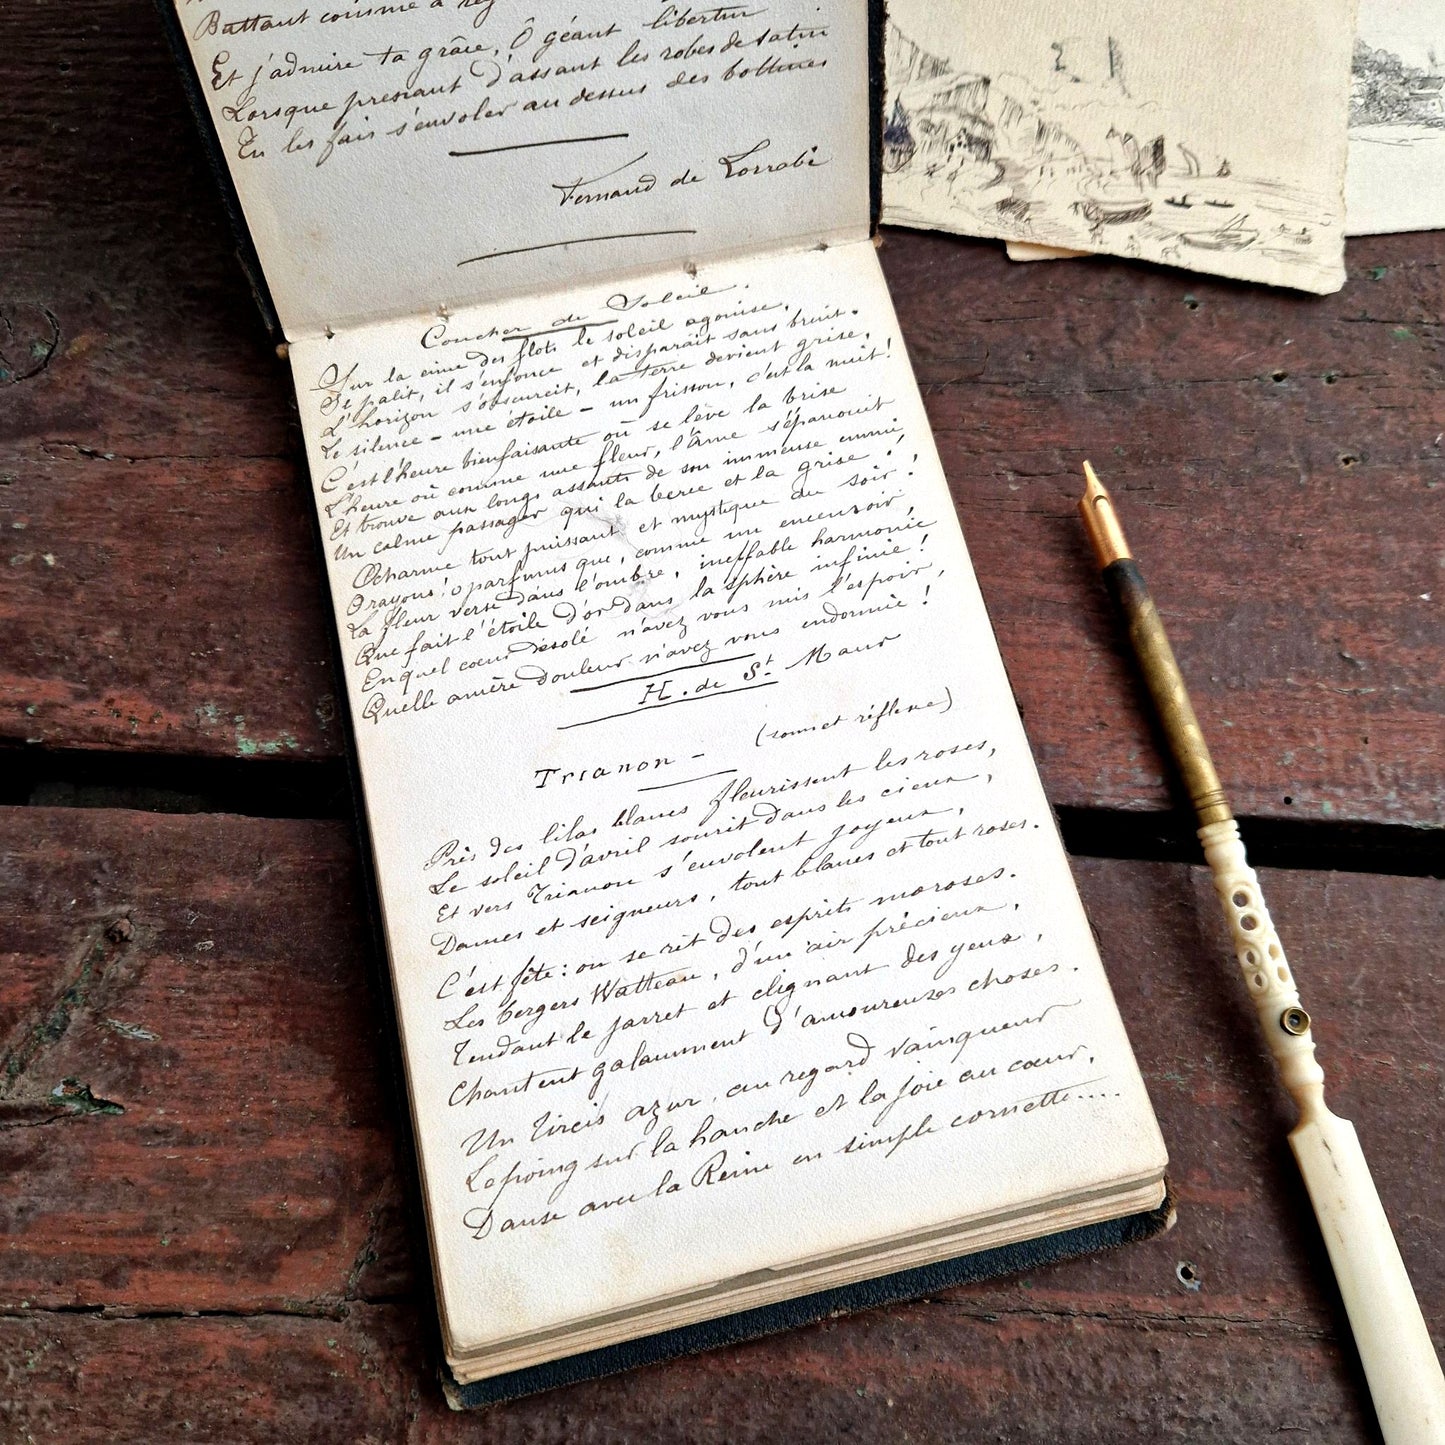 Battant comme à
Et j'admire ta grâce, ô géant libertin
Lorsque pressant d'assaut les robes de satin
Tu les fais s'envoler au dessus des bottines
Fernand de Lorrabé
Coucher de Soleil.
Sur la cime des flots le soleil agonise,
Il pâlit, il s'enfonce et disparaît sans bruit.
L'horizon s'obscurcit, la terre devient grise,
Le silence - une étoile - un frisson, c'est la nuit!
C'est l'heure bienfaisante où se lève la brise
L'heure où comme une fleur, l'âme s'épanouit
Et trouve aux longs assauts de son immense ennui,
Un calme passager qui la berce et la grise.
O charme tout puissant et mystique du soir!
O rayons! o parfums que, comme un encensoir,
La fleur verse dans l'ombre, ineffable harmonie
Que fait l'étoile d'or dans la sphère infinie!
En quel cœur désolé n'avez vous mis l'espoir,
Quelle amère douleur n'avez vous endormie!
H. de St. Maur
Trianon - (sonnet réflexe)
Près des lilas blancs fleurissent les roses,
Le soleil d'avril sourit dans les cieux,
Et vers Trianon s'envolent joyeux,
Dames et seigneurs, tout blancs et tout roses.
C'est fête: on se rit des esprits moroses.
Les bergers Watteau, d'un air précieux,
Tendant le jarret et clignant des yeux,
Chantent galamment d'amoureuses choses.
Un Tircis azur, au regard vainqueur
Le poing sur la hanche et la joie au cœur,
Danse avec la Reine en simple cornette.....